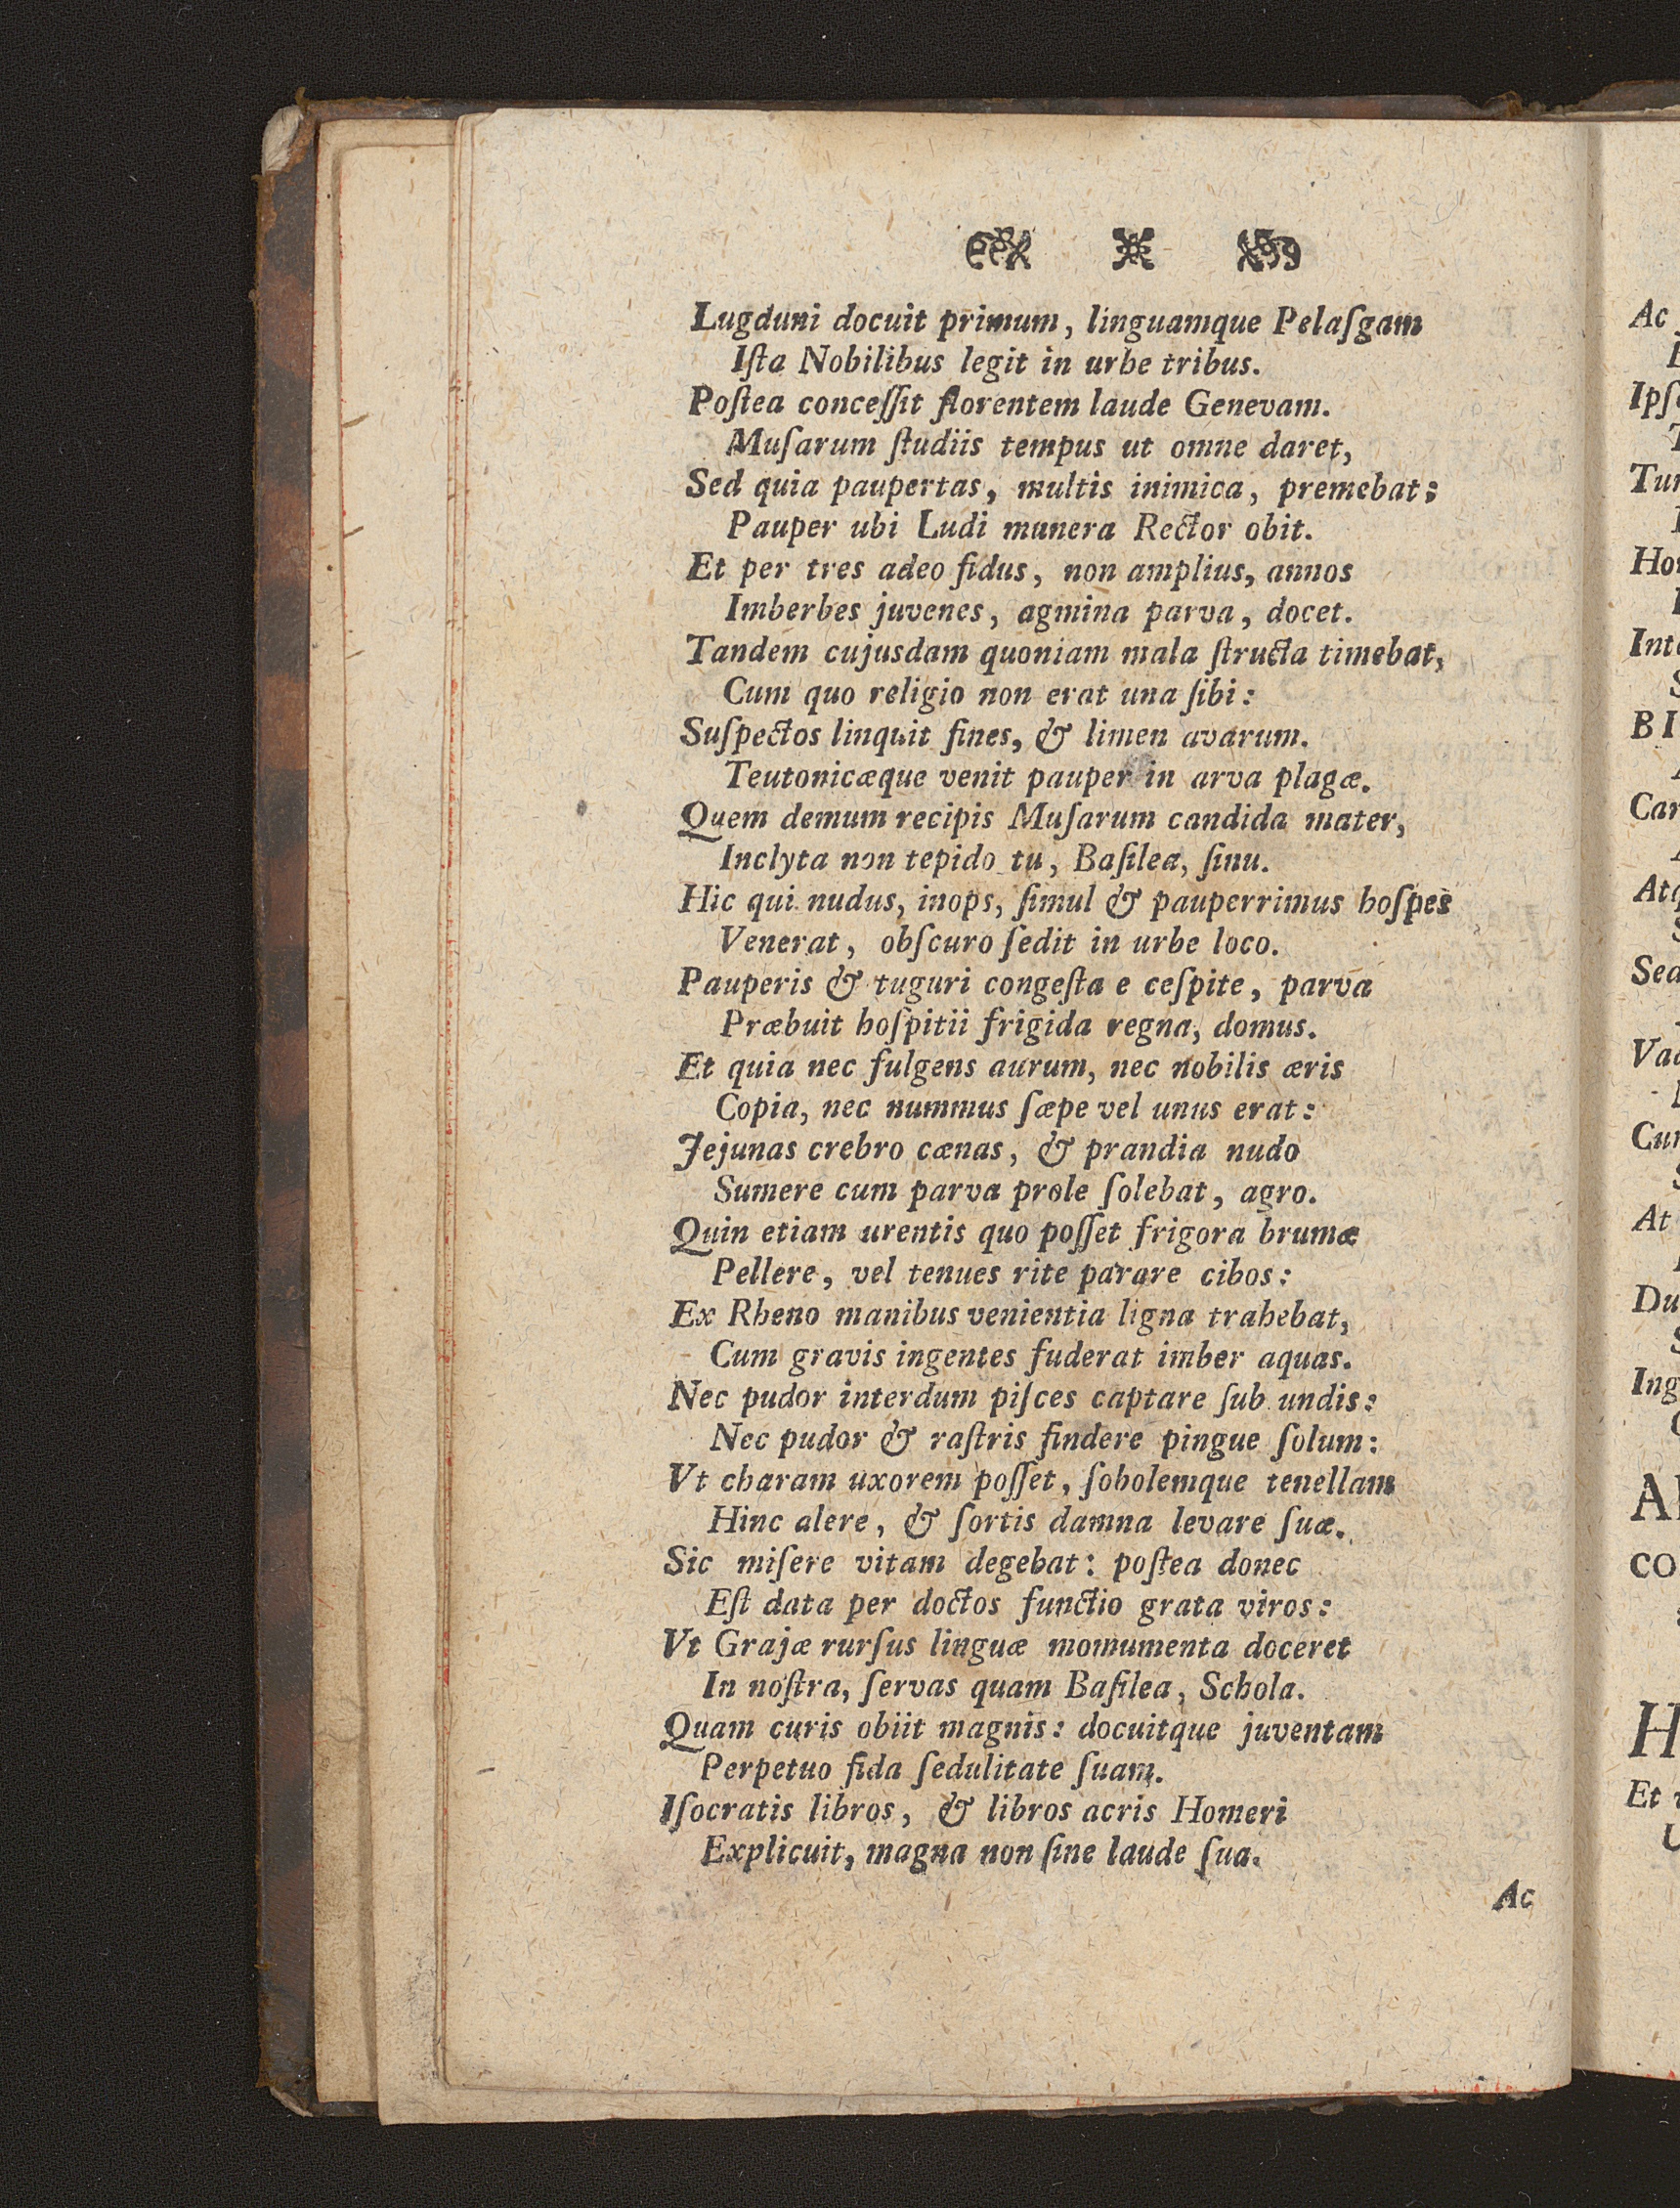 Lugduni docuit primum, linguamque Pelaſgam
Iſta Nobilibus legit in urbe tribus.
Poſtea conceſſit florentem laude Genevam.
Muſarum ſtudiis tempus ut omne daret,
Sed quia paupertas, multis inimica, premebat;
Pauper ubi Ludi munera Rector obit.
Et per tres adeo fidus, non amplius, annos
Imberbes juvenes, agmina parva, docet.
Tandem cujusdam quoniam mala ſtructa timebat,
Cum quo religio non erat una ſibi:
Suſpectos linquit fines, & limen avarum.
Teutonicæque venit pauper in arva plagæ.
Quem demum recipis Muſarum candida mater,
Inclyta non tepido tu, Baſilea, ſinu.
Hic qui nudus, inops, ſimul & pauperrimus hoſpes
Venerat, obſcuro ſedit in urbe loco.
Pauperis & tuguri congeſta e ceſpite, parva
Præbuit hoſpitii frigida regna, domus.
Et quia nec fulgens aurum, nec nobilis æris
Copia, nec nummus ſæpe vel unus erat:
Jejunas crebro cænas, & prandia nudo
Sumere cum parva prole ſolebat, agro.
Quin etiam urentis quo poſſet frigora brumæ
Pellere, vel tenues rite parare cibos:
Ex Rheno manibus venientia ligna trahebat,
Cum gravis ingentes fuderat imber aquas.
Nec pudor interdum piſces captare ſub undis:
Nec pudor & raſtris findere pingue ſolum:
Vt charam uxorem poſſet, ſobolemque tenellam
Hinc alere, & ſortis damna levare ſuæ.
Sic miſere vitam degebat: poſtea donec
Eſt data per doctos functio grata viros:
Vt Grajæ rurſus linguæ momumenta doceret
In noſtra, ſervas quam Baſilea, Schola.
Quam curis obiit magnis: docuitque juventam
Perpetuo fida ſedulitate ſuam.
Iſocratis libros, & libros acris Homeri
Explicuit, magna non ſine laude ſua.
Ac
Ac
Sed
At
Et